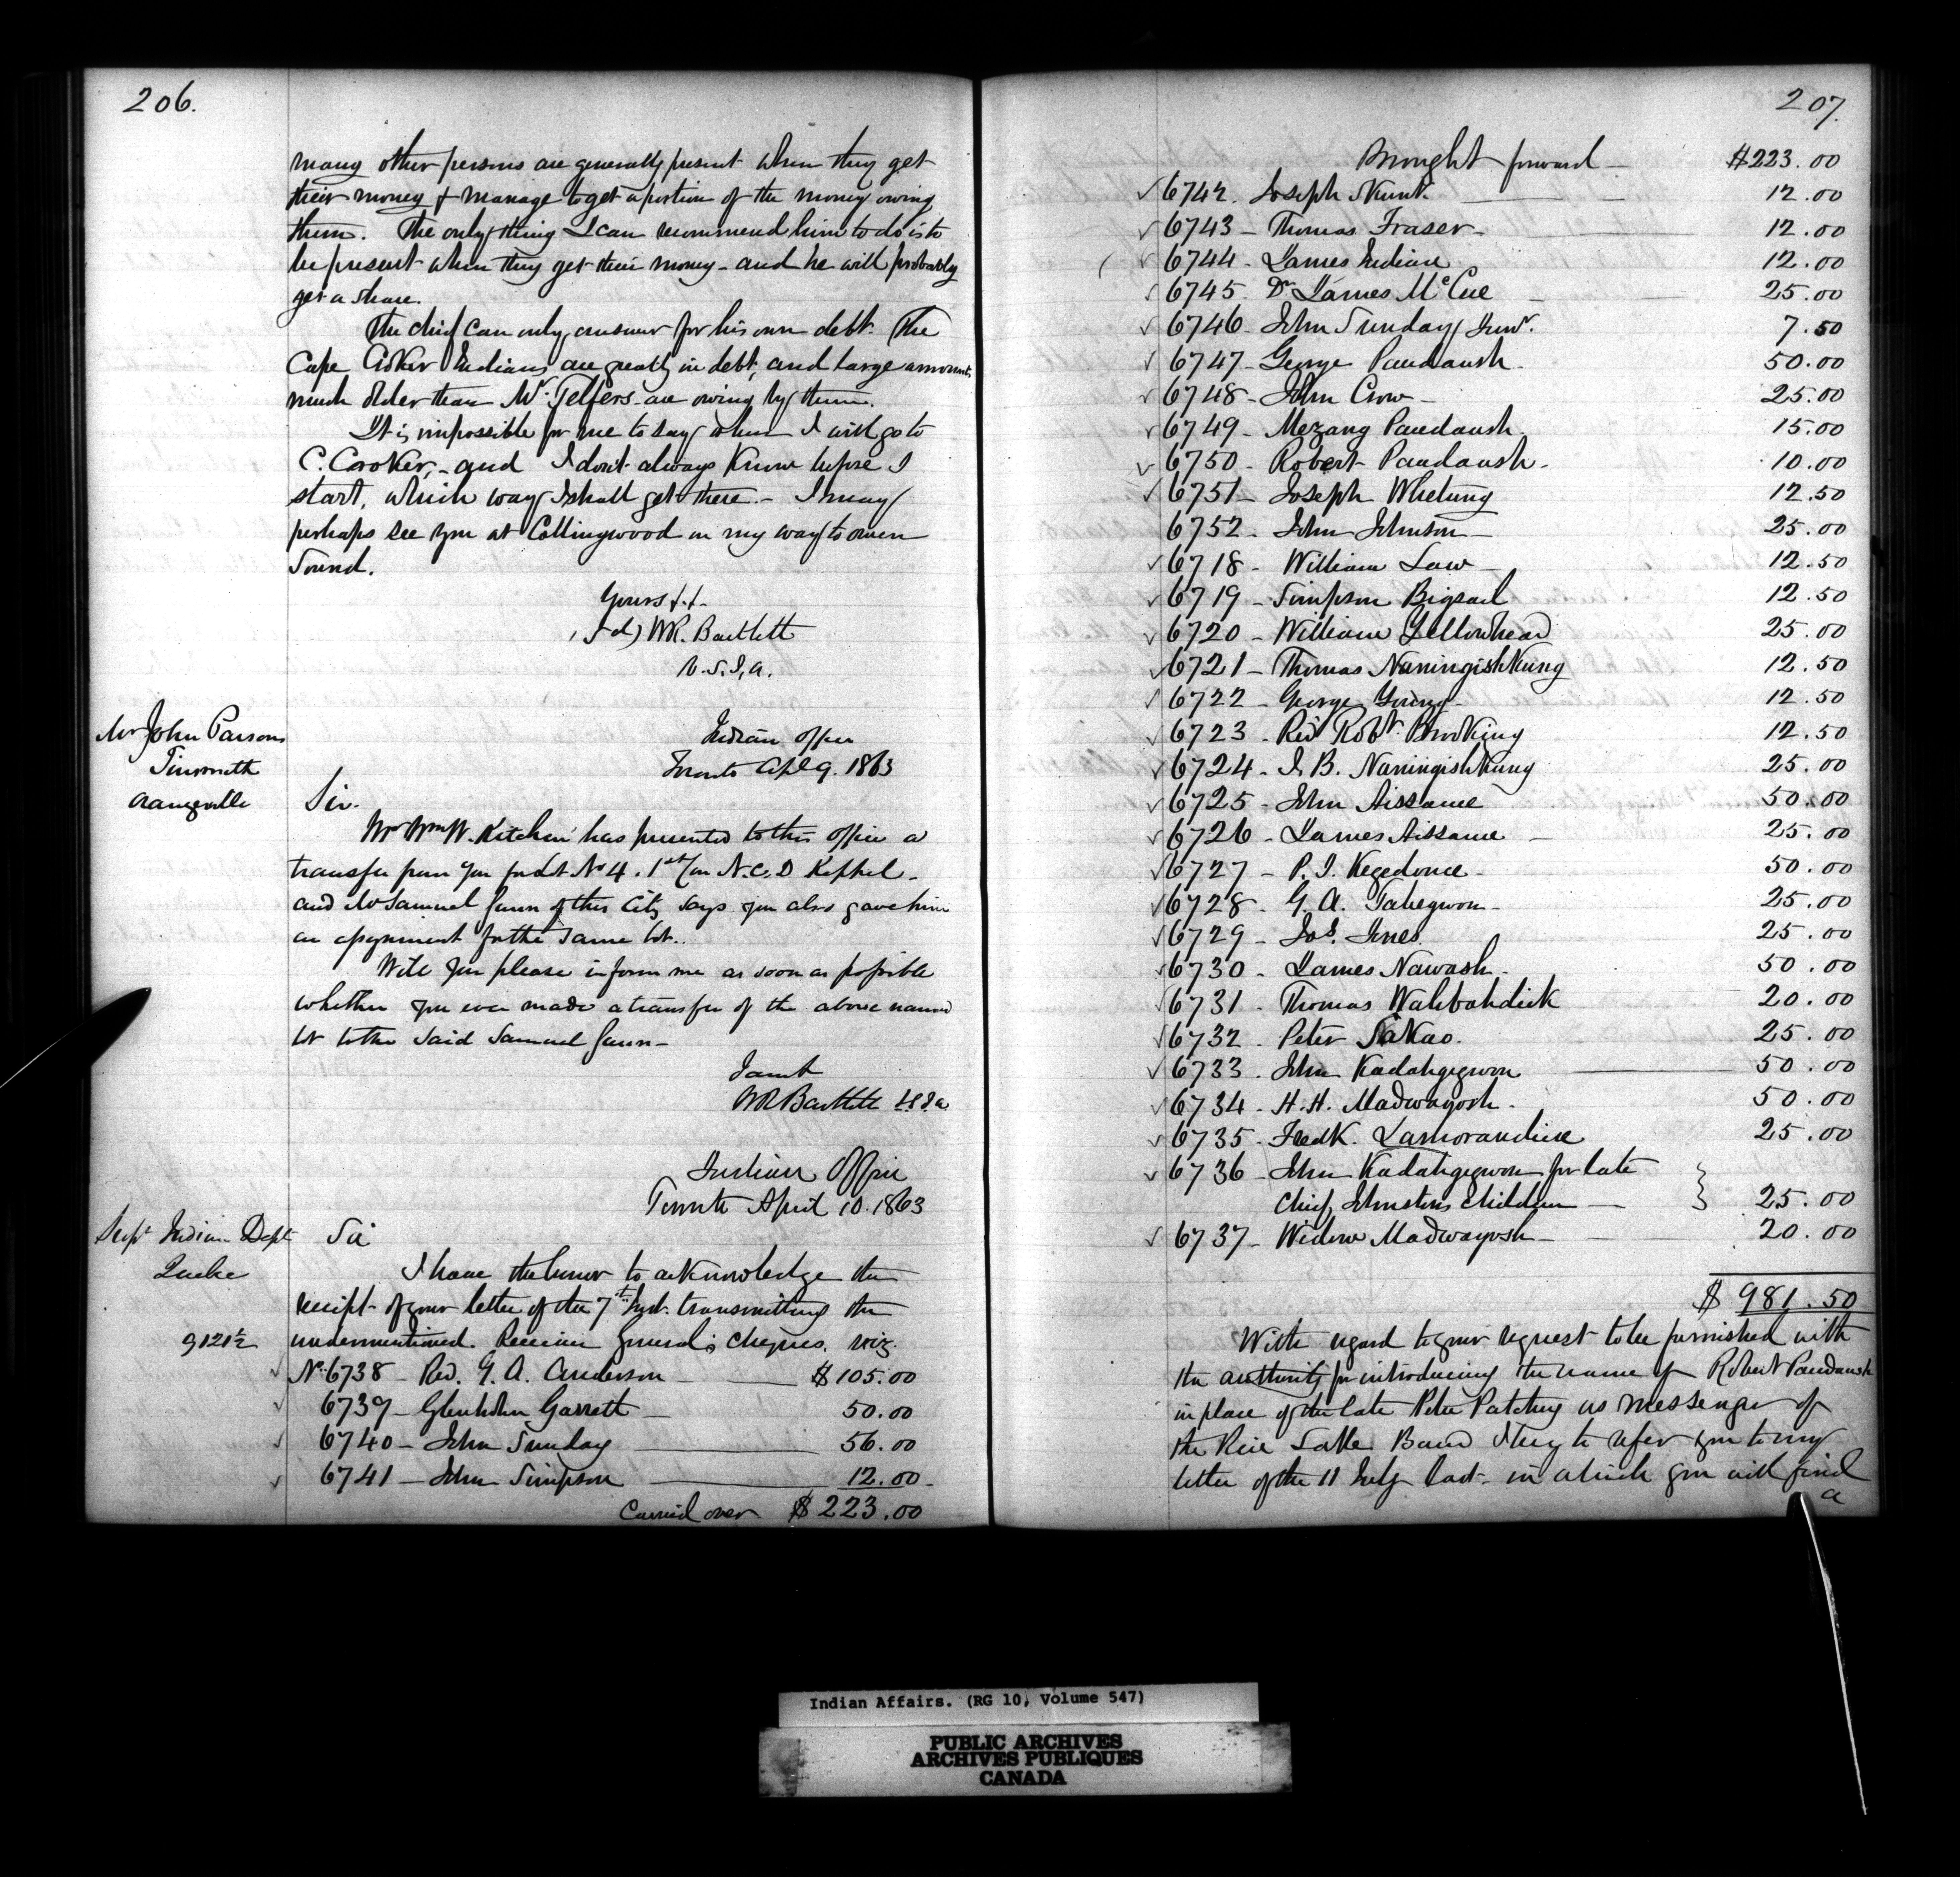 206.
many other persons are generally present when they get
their money & manage to get a portion of the money owing
them. The only thing I can recommend him to do is to
be present when they get their money - and he will probably
get a share.
The chief can only answer for his own debt. The
Cape Croker Indians are greatly in debt, and large amounts
much older than Mr. Telfers are owing by them.
It is impossible for me to say when I will go to
C. Crooker, - and I don't always know before I
start, which way I shall get there. - I may
perhaps see you at Collingwood on my way to Owen
Sound.
Yours &.&.
(Sd) WR. Bartlett
V.S.I.A.
Mr John Parsons
Tinsmith
Orangeville
Indian Office
Toronto Apl 9. 1863
Sir.
Mr Wm W. Kitchen has presented to this office a
transfer from you for Lot No 4. 1st Con N.C.D Keppel -
and Mr Samuel Gunn of this City says you also gave him
an assignment for the same lot.
Will you please inform me as soon as possible
whether you ever made a transfer of the above named
lot to the said Samuel Gunn -
I am &
WR Bartlett
Indian Office
Toronto April 10. 1863
Supt Indian Dept
Quebec
Sir
I have the honor to acknowledge the
receipt of your letter of the 7th Inst. transmitting the
9121½
undermentioned Receiver General's cheques. viz.
No. 6738 - Rev. G. A. Anderson - $105.00
6739 - Glenholm Garrett - 50.00
6740 - John Sunday 56.00
6741 - John Simpson 12.00
Carried over $223.00
207.
Brought forward - $223.00
6742. Joseph Skunk. 12.00
6743 - Thomas Fraser - 12.00
6744 - James Indian 12.00
6745. Dr James McCue 25.00
6746 - John Sunday Junr. 7.50
6747 - George Paudaush. 50.00
6748 - John Crow - 25.00
6749 - Mezang Paudaush. 15.00
6750 - Robert Paudaush. 10.00
6751 - Joseph Whetung 12.50
6752 - John Johnson - 25.00
6718 - William Law - 12.50
6719 - Simpson Bigsail 12.50
6720 - William Yellowhead 25.00
6721 - Thomas Naningishkung 12.50
6722 - George Young - 12.50
6723 - Revd Robt. Brooking 12.50
6724 - J. B. Naningishkung 25.00
6725 - John Aissance 50.00
6726 - James Aissance - 25.00
6727 - P. J. Kegedonce - 50.00
6728 - G. A. Tabegwon - 25.00
6729 - Jos. Jones. 25.00
6730 - James Nawash. 50.00
6731 - Thomas Wahbahdick 20.00
6732 - Peter SaKao. 25.00
6733 - John Kadahgegwon 50.00
6734 - H. H. Madwayosh. 50.00
6735 - Fredk. Lamorandiere 25.00
6736 - John Kadahgegwon for late
Chief Johnston's children - 25.00
6737 - Widow Madwayosh - 20.00
$981.50
With regard to your request to be furnished with
the authority for introducing the name of Robert Paudaush
in place of the late Peter Patchey as messenger of
the Rice Lake Band I beg to refer you to my
letter of the 11 July last - in which you will find
a
Indian Affairs. (RG 10, Volume 547)
PUBLIC ARCHIVES
ARCHIVES PUBLIQUES
CANADA